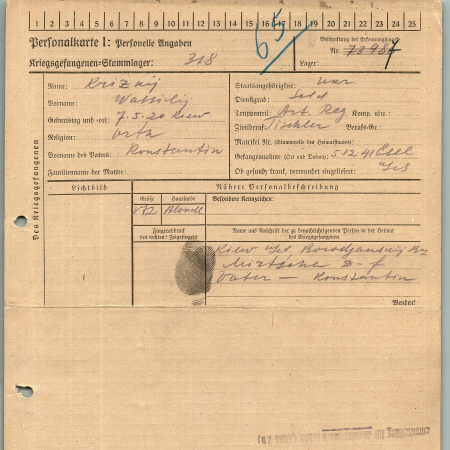 1 2 3 4 5 6 7 8 9 10 11 12 13 14 15 16 17 18 19 20 21 22 23 24 25
Personalkarte I: Personelle Angaben
Beschriftung der Erkennungsmarke
Nr. 73987
Kriegsgefangenen-Stammlager: 318
Lager:
65
Des Kriegsgefangenen
Name: Krizkij
Vorname: Wassilij
Geburtstag und -ort: 7.5.20 Kiew
Religion: orth
Vorname des Vaters: Konstantin
Familienname der Mutter:
Staatsangehörigkeit: Ukr
Dienstgrad: Sold
Truppenteil: Art. Reg Komp. usw.:
Zivilberuf: Tischler Berufs-Gr.:
Matrikel Nr. (Stammrolle des Heimatstaates):
Gefangennahme (Ort und Datum): 5.12.41
Ob gesund, krank, verwundet eingeliefert:
Lichtbild
Nähere Personalbeschreibung
Größe
Haarfarbe
Besondere Kennzeichen:
172
Blond
Fingerabdruck
des rechten! Zeigefingers
Name und Anschrift der zu benachrichtigenden Person in der Heimat
des Kriegsgefangenen
Kiew
Vater — Konstantin
Wenden!